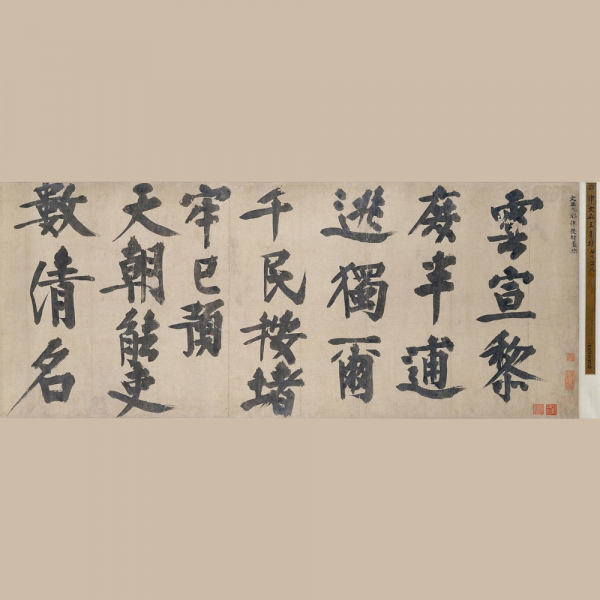 雲宣黎
庶半逋
逃獨爾
千民按堵
牢已預
天朝能吏
數清名